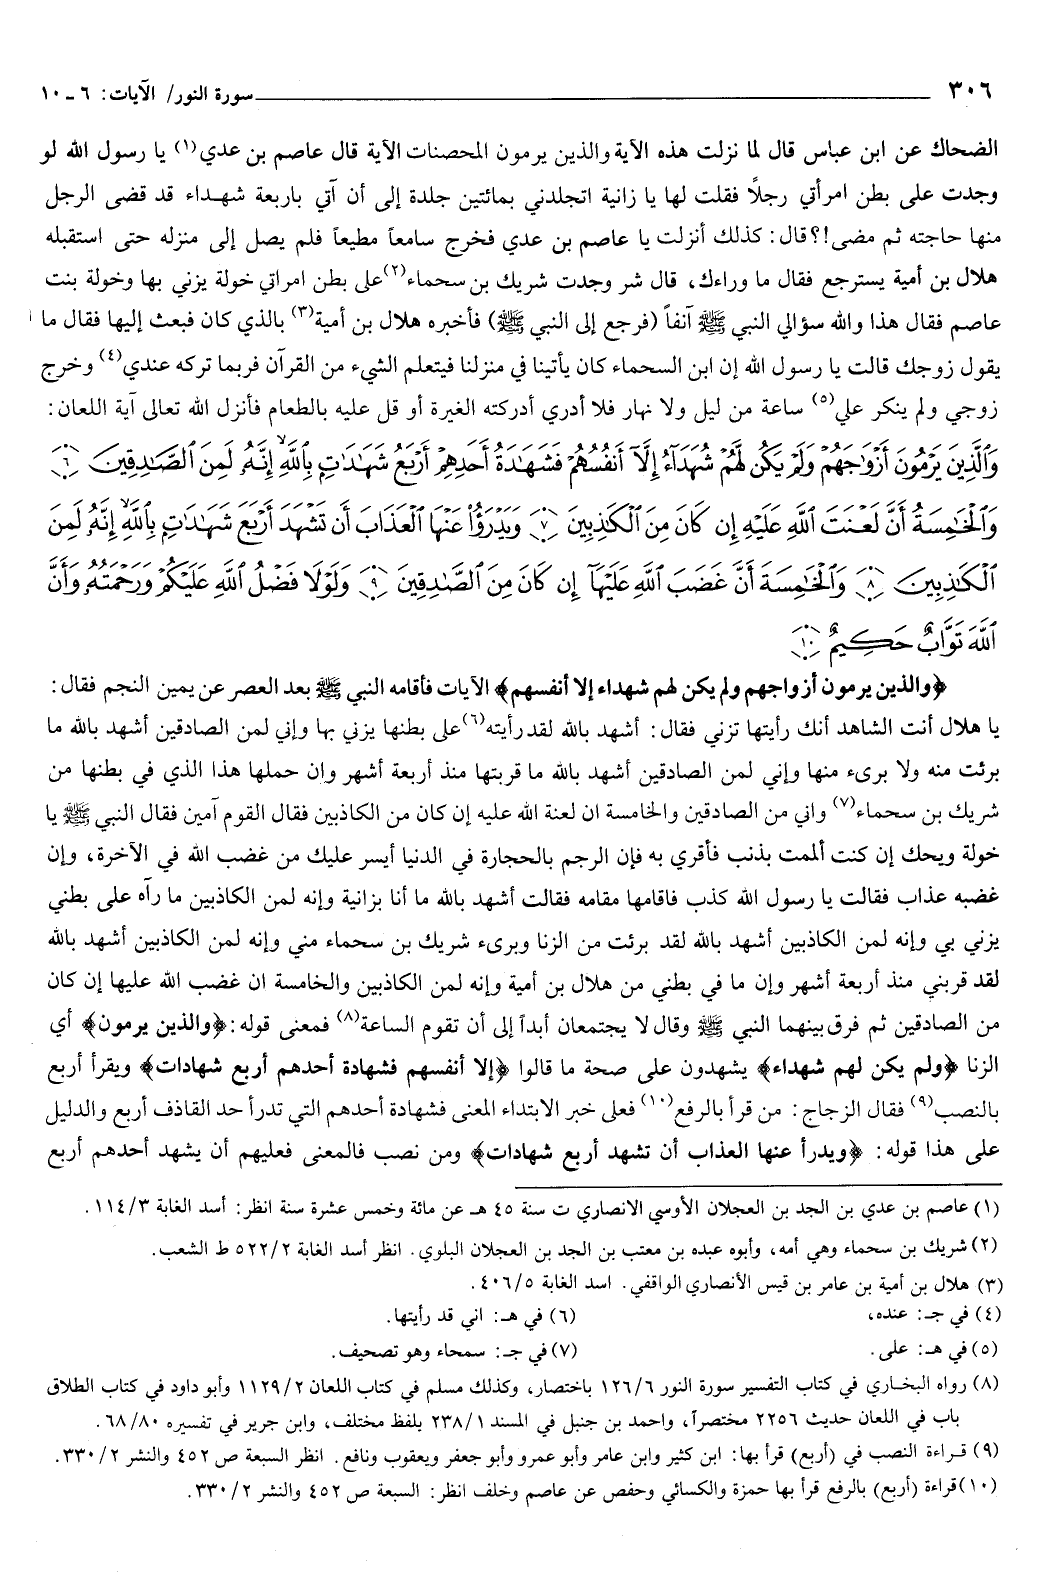 ٣٠٦ سورة النور/ الآيات: ٦ - ١٠
الضحاك عن ابن عباس قال لما نزلت هذه الآية والذين يرمون المحصنات الآية قال عاصم بن عدي(١) يا رسول الله لو
وجدت على بطن امرأتي رجلاً فقلت لها يا زانية اتجلدني بمائتين جلدة إلى أن آتي باربعة شهداء قد قضى الرجل
منها حاجته ثم مضى!؟ قال: كذلك أنزلت يا عاصم بن عدي فخرج سامعاً مطيعاً فلم يصل إلى منزله حتى استقبله
هلال بن أمية يسترجع فقال ما وراءك، قال شر وجدت شريك بن سحماء(٢) على بطن امراتي خولة يزني بها وخولة بنت
عاصم فقال هذا والله سؤالي النبي ﷺ آنفاً (فرجع إلى النبي ﷺ) فأخبره هلال بن أمية(٣) بالذي كان فبعث إليها فقال ما
يقول زوجك قالت يا رسول الله إن ابن السحماء كان يأتينا في منزلنا فيتعلم الشيء من القرآن فربما تركه عندي(٤) وخرج
زوجي ولم ينكر علي(٥) ساعة من ليل ولا نهار فلا أدري أدركته الغيرة أو قل عليه بالطعام فأنزل الله تعالى آية اللعان:
وَالَّذِينَ يَرْمُونَ أَزْوَاجَهُمْ وَلَمْ يَكُن لَّهُمْ شُهَدَاءُ إِلَّا أَنفُسُهُمْ فَشَهَادَةُ أَحَدِهِمْ أَرْبَعُ شَهَادَاتٍ بِاللَّهِ إِنَّهُ لَمِنَ الصَّادِقِينَ ٦
وَالْخَامِسَةُ أَنَّ لَعْنَتَ اللَّهِ عَلَيْهِ إِن كَانَ مِنَ الْكَاذِبِينَ ٧ وَيَدْرَؤُا عَنْهَا الْعَذَابَ أَن تَشْهَدَ أَرْبَعَ شَهَادَاتٍ بِاللَّهِ إِنَّهُ لَمِنَ
الْكَاذِبِينَ ٨ وَالْخَامِسَةَ أَنَّ غَضَبَ اللَّهِ عَلَيْهَا إِن كَانَ مِنَ الصَّادِقِينَ ٩ وَلَوْلَا فَضْلُ اللَّهِ عَلَيْكُمْ وَرَحْمَتُهُ وَأَنَّ
اللَّهَ تَوَّابٌ حَكِيمٌ ١٠
﴿والذين يرمون أزواجهم ولم يكن لهم شهداء إلا أنفسهم﴾ الآيات فأقامه النبي ﷺ بعد العصر عن يمين النجم فقال:
يا هلال أنت الشاهد أنك رأيتها تزني فقال: أشهد بالله لقد رأيته(٦) على بطنها يزني بها وإني لمن الصادقين أشهد بالله ما
برئت منه ولا برىء منها وإني لمن الصادقين أشهد بالله ما قربتها منذ أربعة أشهر وان حملها هذا الذي في بطنها من
شريك بن سحماء(٧) واني من الصادقين والخامسة ان لعنة الله عليه إن كان من الكاذبين فقال القوم آمين فقال النبي ﷺ يا
خولة ويحك إن كنت ألممت بذنب فأقري به فإن الرجم بالحجارة في الدنيا أيسر عليك من غضب الله في الآخرة، وإن
غضبه عذاب فقالت يا رسول الله كذب فاقامها مقامه فقالت أشهد بالله ما أنا بزانية وإنه لمن الكاذبين ما رآه على بطني
يزني بي وإنه لمن الكاذبين أشهد بالله لقد برئت من الزنا وبرىء شريك بن سحماء مني وإنه لمن الكاذبين أشهد بالله
لقد قربني منذ أربعة أشهر وإن ما في بطني من هلال بن أمية وإنه لمن الكاذبين والخامسة ان غضب الله عليها إن كان
من الصادقين ثم فرق بينهما النبي ﷺ وقال لا يجتمعان أبداً إلى أن تقوم الساعة(٨) فمعنى قوله: ﴿والذين يرمون﴾ أي
الزنا ﴿ولم يكن لهم شهداء﴾ يشهدون على صحة ما قالوا ﴿إلا أنفسهم فشهادة أحدهم أربع شهادات﴾ ويقرأ أربع
بالنصب(٩) فقال الزجاج: من قرأ بالرفع(١٠) فعلى خبر الابتداء المعنى فشهادة أحدهم التي تدرأ حد القاذف أربع والدليل
على هذا قوله: ﴿ويدرأ عنها العذاب أن تشهد أربع شهادات﴾ ومن نصب فالمعنى فعليهم أن يشهد أحدهم أربع
(١) عاصم بن عدي بن الجد بن العجلان الأوسي الانصاري ت سنة ٤٥ هـ عن مائة وخمس عشرة سنة انظر: أسد الغابة ١١٤/٣.
(٢) شريك بن سحماء وهي أمه، وأبوه عبده بن معتب بن الجد بن العجلان البلوي. انظر أسد الغابة ٥٢٢/٢ ط الشعب.
(٣) هلال بن أمية بن عامر بن قيس الأنصاري الواقفي. اسد الغابة ٤٠٦/٥.
(٤) في جـ: عنده، (٦) في هـ: اني قد رأيتها.
(٥) في هـ: على. (٧) في جـ: سمحاء وهو تصحيف.
(٨) رواه البخاري في كتاب التفسير سورة النور ١٢٦/٦ باختصار، وكذلك مسلم في كتاب اللعان ١١٢٩/٢ وأبو داود في كتاب الطلاق
باب في اللعان حديث ٢٢٥٦ مختصراً، واحمد بن جنبل في المسند ٢٣٨/١ بلفظ مختلف، وابن جرير في تفسيره ٦٨/٨٠.
(٩) قراءة النصب في (أربع) قرأ بها: ابن كثير وابن عامر وأبو عمرو وأبو جعفر ويعقوب ونافع. انظر السبعة ص ٤٥٢ والنشر ٣٣٠/٢.
(١٠) قراءة (أربع) بالرفع قرأ بها حمزة والكسائي وحفص عن عاصم وخلف انظر: السبعة ص ٤٥٢ والنشر ٣٣٠/٢.